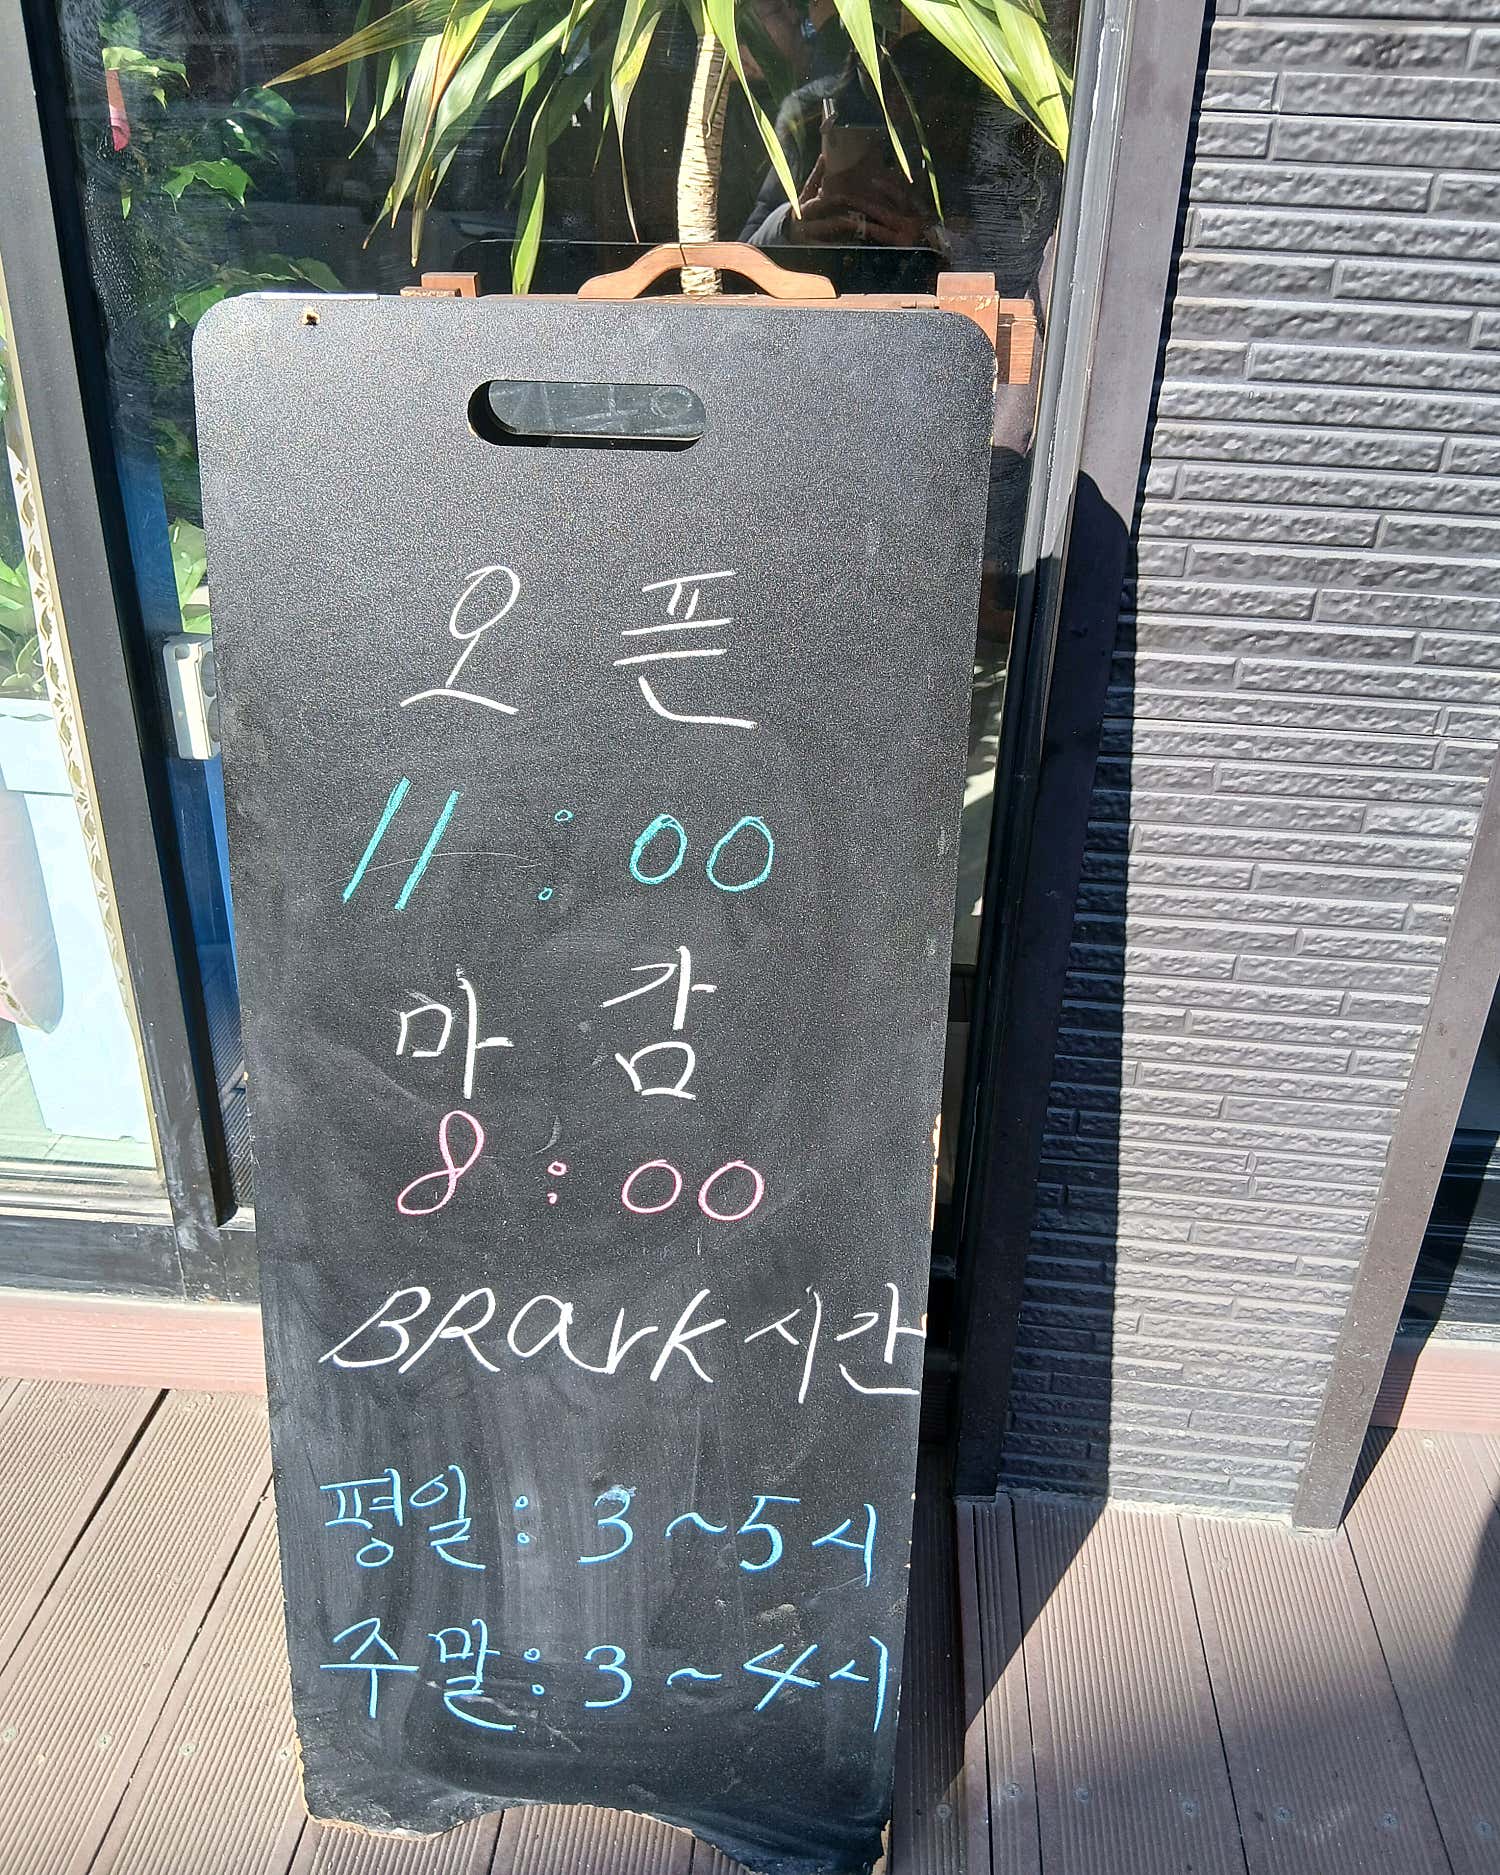 오픈
11:00
마감
8:00
BRark 시간
평일: 3~5시
주말: 3~4시